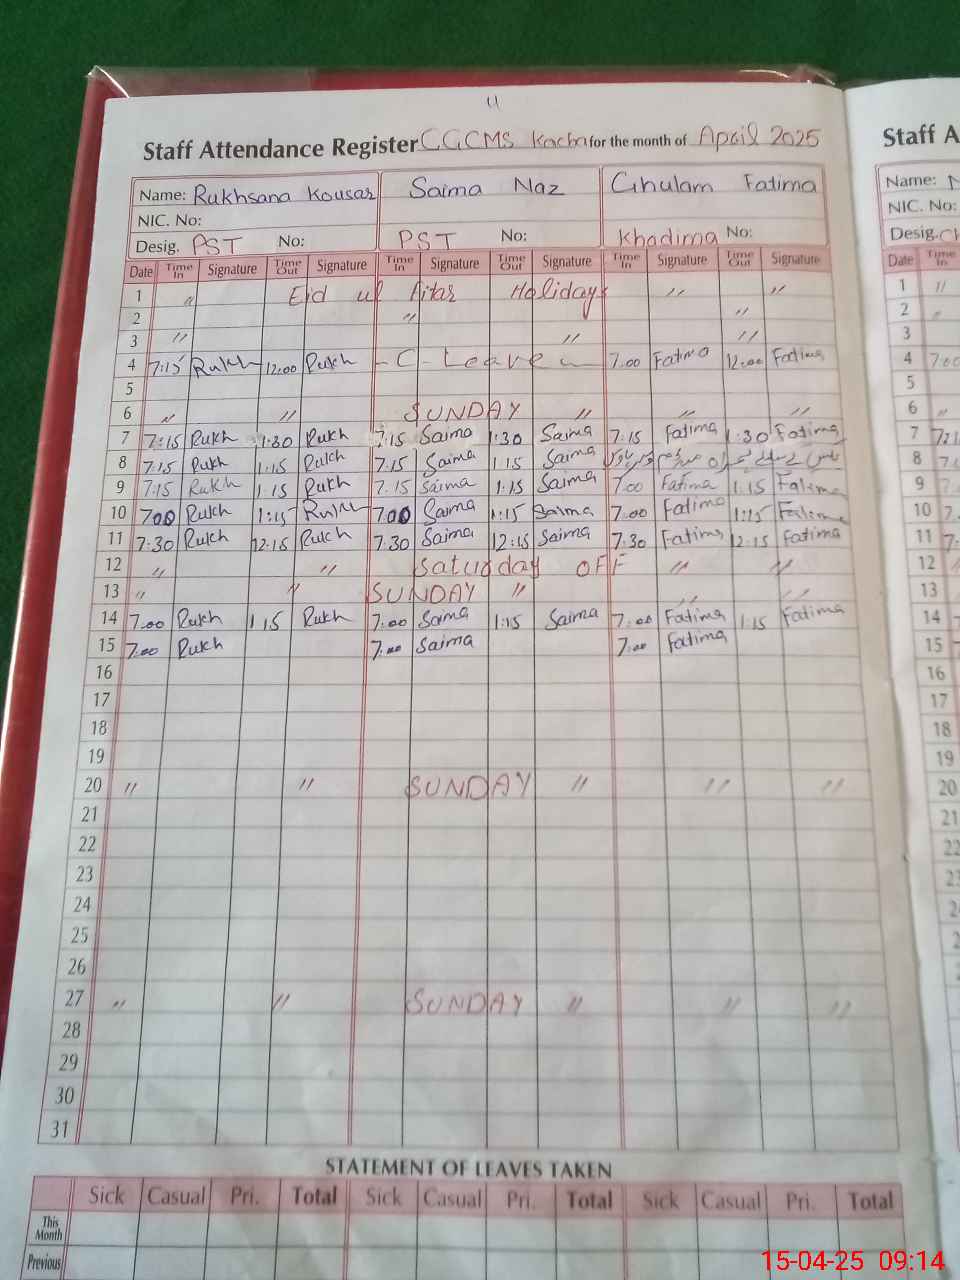 4
Staff Attendance Register CGCMS Kacha for the month of April 2025
Name: Rukhsana Kousar Saima Naz Ghulam Fatima
NIC. No:
Desig. PST No: PST No: Khadima No:
Date Time In Signature Time Out Signature Time In Signature Time Out Signature Time In Signature Time Out Signature
1 〃 Eid ul Fitar Holidays 〃 〃
2 〃 〃
3 〃 〃 〃
4 7:15 Rukh 12:00 Rukh - C - Leave 7:00 Fatima 12:00 Fatima
5
6 〃 〃 SUNDAY 〃 〃 〃
7 7:15 Rukh 1:30 Rukh 7:15 Saima 1:30 Saima 7:15 Fatima 1:30 Fatima
8 7:15 Rukh 1:15 Rukh 7:15 Saima 1:15 Saima
9 7:15 Rukh 1:15 Rukh 7:15 Saima 1:15 Saima 7:00 Fatima 1:15 Fatima
10 7:00 Rukh 1:15 Rukh 7:00 Saima 1:15 Saima 7:00 Fatima 1:15 Fatima
11 7:30 Rukh 12:15 Rukh 7:30 Saima 12:15 Saima 7:30 Fatima 12:15 Fatima
12 〃 〃 Saturday OFF 〃 〃
13 〃 〃 SUNDAY 〃 〃 〃
14 7:00 Rukh 1:15 Rukh 7:00 Saima 1:15 Saima 7:00 Fatima 1:15 Fatima
15 7:00 Rukh 7:00 Saima 7:00 Fatima
16
17
18
19
20 〃 〃 SUNDAY 〃 〃 〃
21
22
23
24
25
26
27 〃 〃 SUNDAY 〃 〃 〃
28
29
30
31
STATEMENT OF LEAVES TAKEN
Sick Casual Pri. Total Sick Casual Pri. Total Sick Casual Pri. Total
This Month
Previous
Staff A
Name:
NIC. No:
Desig.
Date Time In
1 〃
2 〃
3
4 7:00
5
6 〃
7
8
9
10
11
12
13
14
15
16
17
18
19
20
21
22
23
15-04-25 09:14